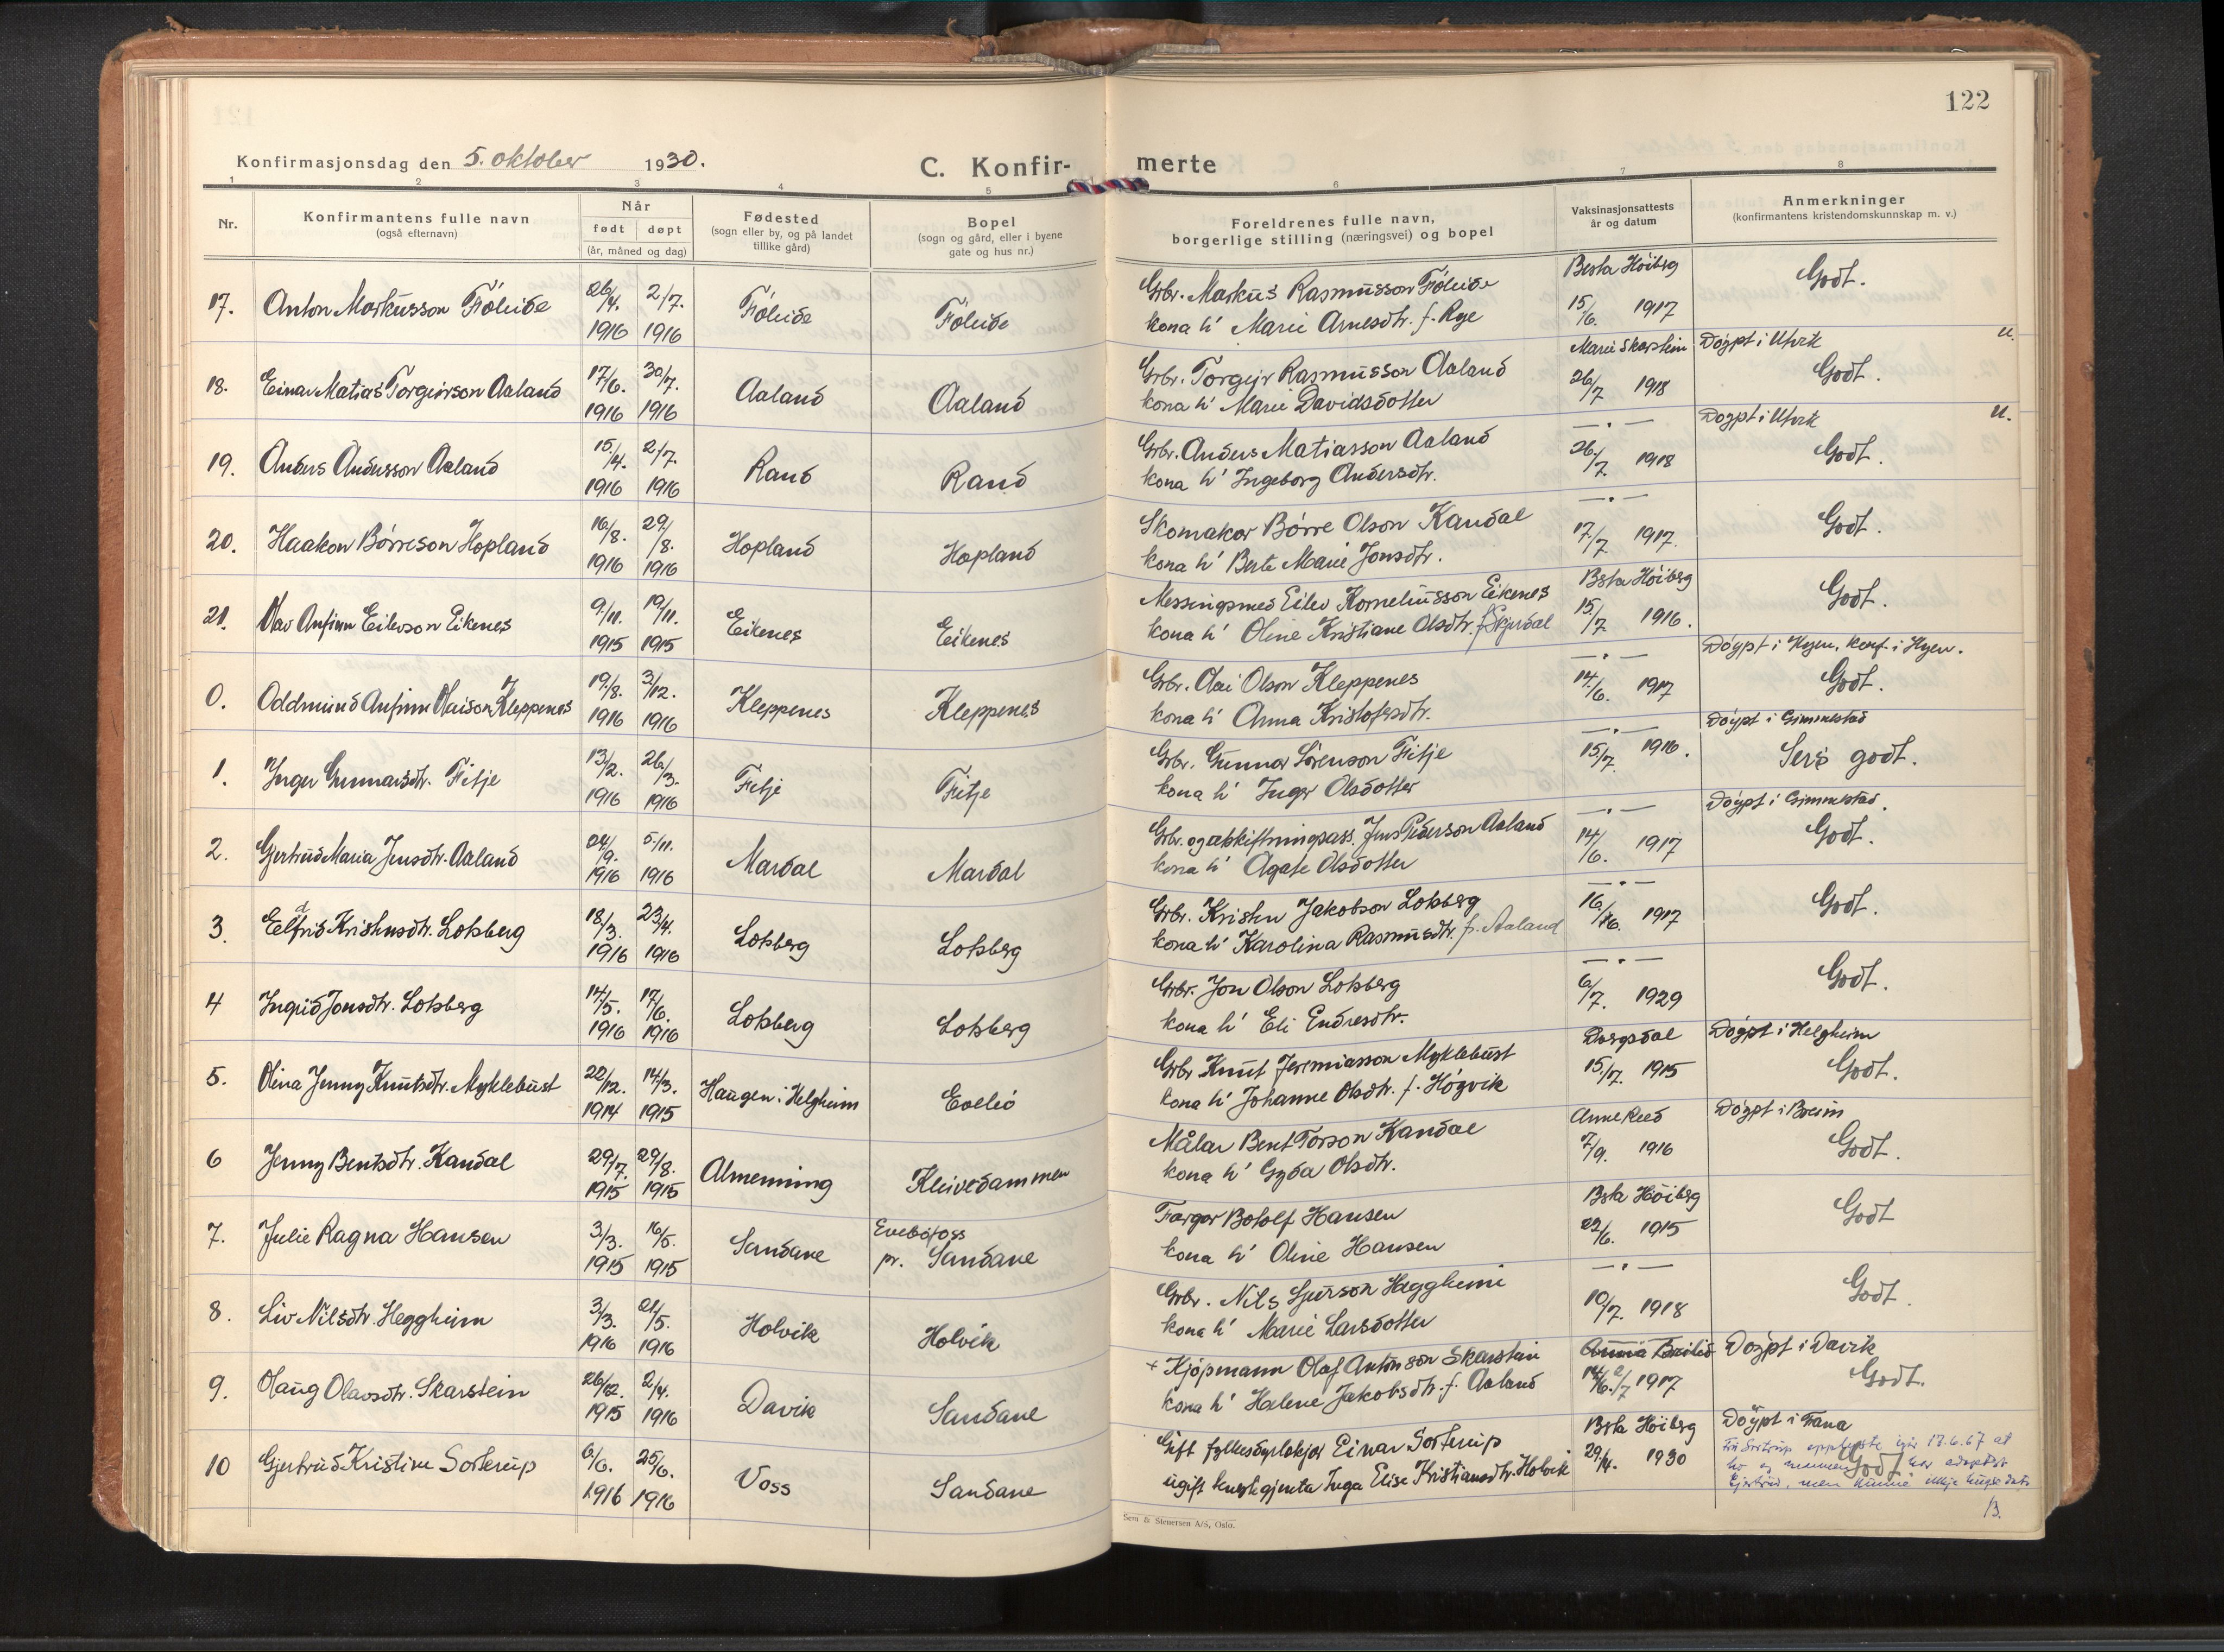 122
Konfirmasjonsdag den 5. oktober 1930.
C. Konfir- merte
1 2 3 4 5 6 7 8
Nr.
Konfirmantens fulle navn
(også efternavn)
Når
født døpt
(år, måned og dag)
Fødested
(sogn eller by, og på landet
tillike gård)
Bopel
(sogn og gård, eller i byene
gate og hus nr.)
Foreldrenes fulle navn,
borgerlige stilling (næringsvei) og bopel
Vaksinasjonsattests
år og datum
Anmerkninger
(konfirmantens kristendomskunnskap m. v.)
17. Anton Markusson Fóleide 26/4. 1916 2/7. 1916 Fóleide Fóleide
Grbr. Markus Rasmusson Fóleide
kona h' Marie Arnesdtr. f. Rye
Besta Höiberg
15/6. 1917
Godt.
18. Einar Matias Torgeirson Aaland 17/6. 1916 30/7. 1916 Aaland Aaland
Grbr. Torgeir Rasmusson Aaland
kona h' Marie Davidsdotter
Marie Skarstein
26/7 1918
Döypt i Utvik u.
Godt.
19. Anders Andersson Aaland 15./4. 1916 2/7. 1916 Rand Rand
Grbr. Anders Matiasson Aaland
kona h' Ingeborg Andersdtr.
— " —
26/7. 1918
Döypt i Utvik u.
Godt.
20. Haakon Börreson Hopland 16/8. 1916 29/8. 1916 Hopland Hopland
Skomakar Börre Olson Kandal
kona h' Berte Marie Jonsdtr.
— " —
17/7 1917.
Godt.
21. Olav Anfinn Eilevson Eikenes 9/11. 1915 19/11. 1915 Eikenes Eikenes
Messingsmed Eilev Korneliusson Eikenes
kona h' Oline Kristiane Olsdtr. f. Skjerdal
Bsta Höiberg
15/7 1916.
Godt.
0. Oddmund Anfinn Olaison Kleppenes 19/8. 1916 3/12. 1916 Kleppenes Kleppenes
Grbr. Olai Olson Kleppenes
kona h' Anna Kristofersdtr.
— " —
14/6. 1917
Döypt i Hyen. Konf. i Hyen.
Godt.
1. Inger Gunnarsdtr. Fitje 13/2. 1916 26/3. 1916 Fitje Fitje
Grbr. Gunnar Sörenson Fitje
kona h' Inger Olsdotter
— " —
15/7. 1916.
Döypt i Gimmestad
Sers godt.
2. Gjertrud Maria Jensdtr. Aaland 24/9. 1916 5/11. 1916 Mardal Mardal
Grbr. og utskiftningsass. Jens Pederson Aaland
kona h' Agate Olsdotter
— " —
14/6. 1917
Döypt i Gimmestad.
Godt.
3. Eldfrid Kristensdtr. Lotsberg 18/3. 1916 23/4. 1916 Lotsberg Lotsberg
Grbr. Kristen Jakobson Lotsberg
kona h' Karolina Rasmusdtr. f. Aaland
— " —
16/6. 1917
Godt.
4 Ingrid Jonsdtr. Lotsberg 14/5. 1916 17/6. 1916 Lotsberg Lotsberg
Grbr. Jon Olson Lotsberg
kona h' Eli Endresdtr.
— " —
6/7. 1929
Godt.
5. Olina Jenny Knutsdtr. Myklebust 22/12. 1914 14/3. 1915 Haugen i Helgheim
Grbr Knut Jeremiasson Myklebust
kona h' Johanne Olsdtr. f. Högvik
15/7. 1915
Döypt i Helgheim
Godt.
6 Jenny Bentsdtr. Kandal 29/7. 1915 29/8. 1915 Almenning Kleivedammen
Målar Bent Torson Kandal
kona h' Gyda Olsdtr.
Anne Reed
7/9. 1916
Döypt i Breim
Godt.
7. Julie Ragna Hansen 3/3. 1915 16/5. 1915 Sandane Eveböfoss pr. Sandane
Fargar Botolf Hansen
kona h' Oline Hansen
Bsta Höiberg
22/6. 1915
Godt
8. Liv Nilsdtr. Heggheim 3/3. 1916 21/5. 1916 Holvik Holvik
Grbr. Nils Sjurson Heggheim
kona h' Marie Larsdotter
— " —
10/7. 1918
Godt.
9. Olaug Olavsdtr. Skarstein 26/12. 1915 2/4. 1916 Davik Sandane
+ Kjöpmann Olaf Antonson Skarstein
kona h' Halene Jakobsdtr. f. Aaland
14/6. 2/7 1917
Döypt i Davik
Godt.
10 Gjertrud Kristine Sorterup 6/6. 1916 25/6. 1916 Voss Sandane
Gift fylkesdyrlækjar Einar Sorterup
ugift hushgjenta Inga Elise Kristiansdtr. Holvik
Bsta Höiberg
29/4. 1930
Döypt i Fana
Fru Sorterup opplyste igår 17.6.67 at
ho og mannen har adoptert
Gjertrud, men kunne ikkje hugse dato
Godt
13.
Sem & Stenersen A/S, Oslo.